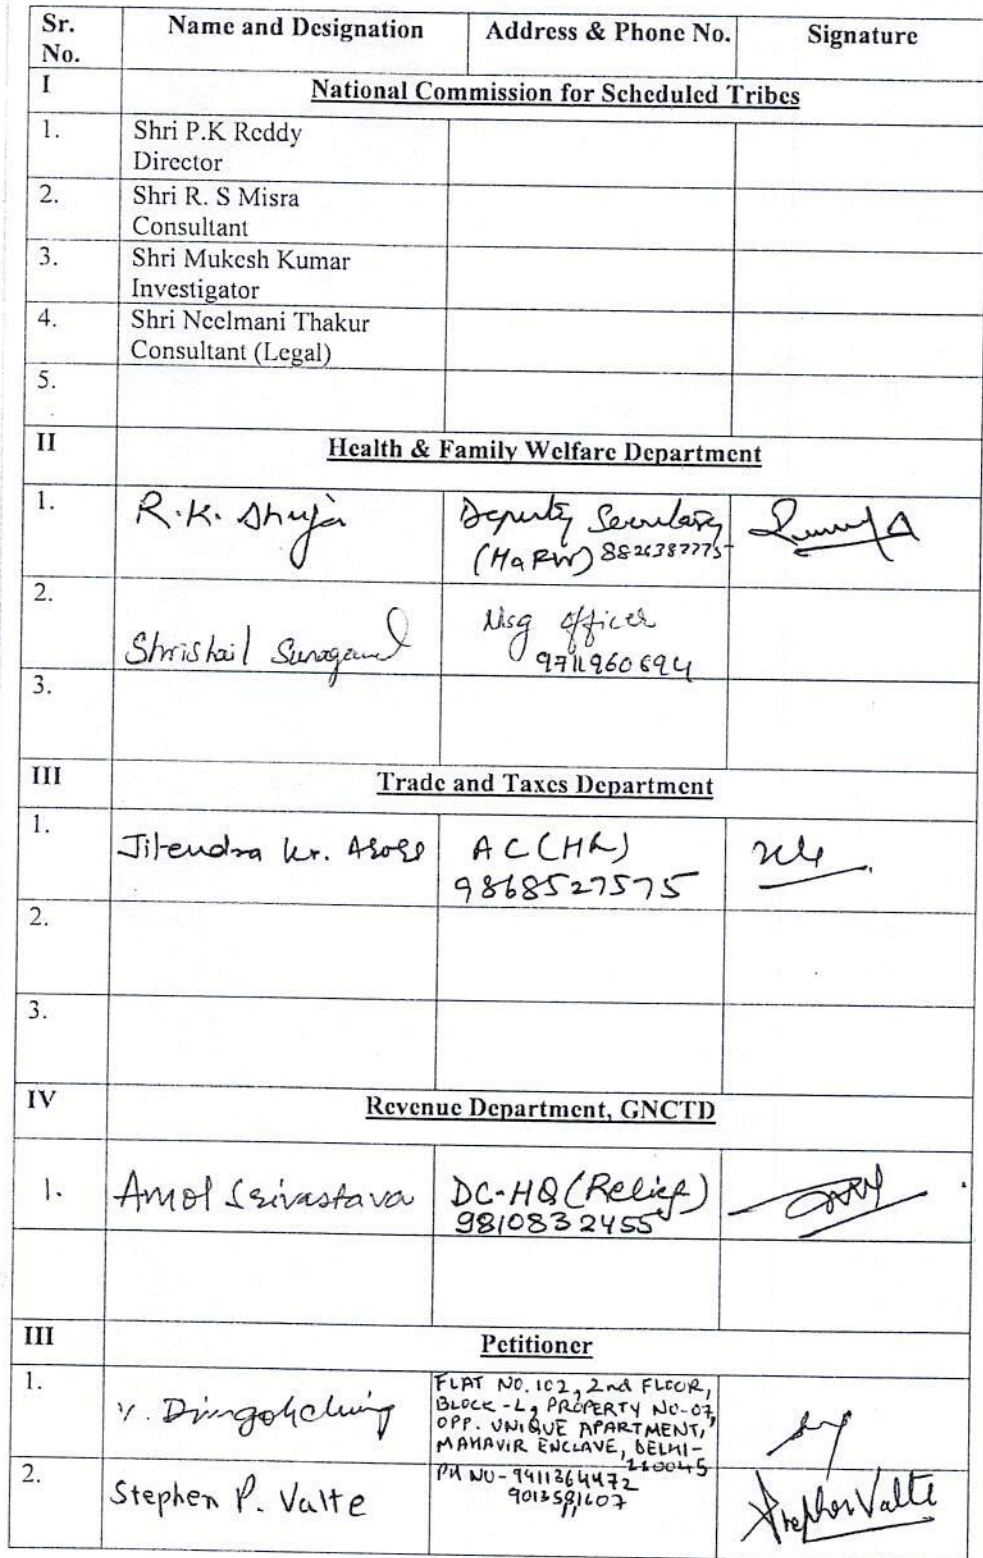 Sr. No. Name and Designation Address & Phone No. Signature
I National Commission for Scheduled Tribes
1. Shri P.K Reddy
Director
2. Shri R. S Misra
Consultant
3. Shri Mukesh Kumar
Investigator
4. Shri Neelmani Thakur
Consultant (Legal)
5.
II Health & Family Welfare Department
1. R.K. Ahuja Deputy Secretary
(H&FW) 8826387775
2. Shrishail Nsg officer
9711960694
3.
III Trade and Taxes Department
1. Jitendra Kr. AC (HR)
9868527575
2.
3.
IV Revenue Department, GNCTD
1. Amol Srivastava DC-HQ (Relief)
9810832455
III Petitioner
1. FLAT NO. 102, 2nd FLOOR,
BLOCK-L, PROPERTY NO-07,
OPP. UNIQUE APARTMENT,
MAHAVIR ENCLAVE, DELHI-
110045
2. Stephen P. Valte PH NO-9911364472
9013591607
Stephen Valte